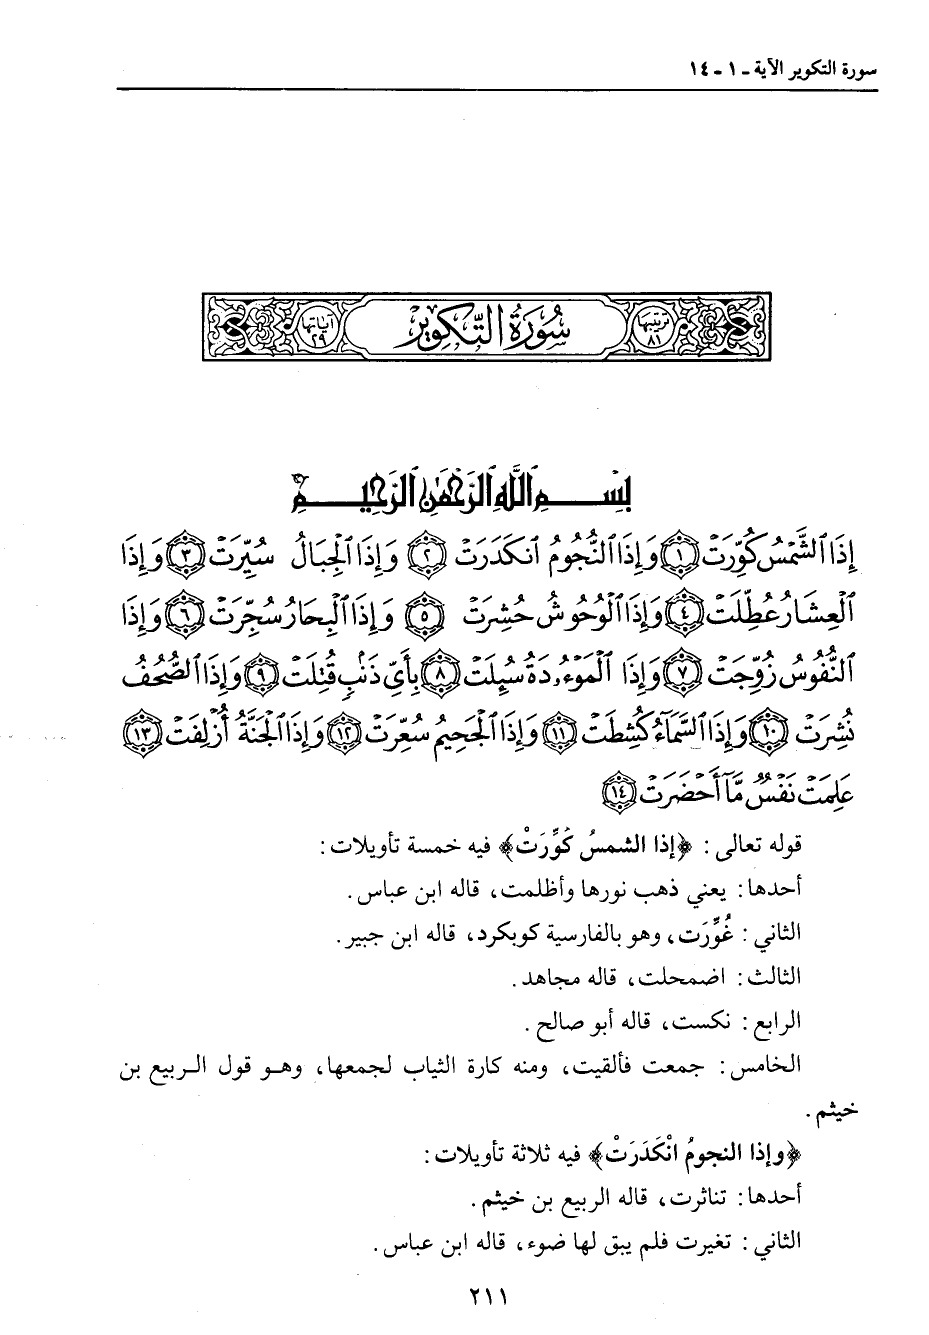 سورة التكوير الآية ـ ١ ـ ١٤
ترتيبها ٨١ سُورَةُ التَّكْوِيرِ آياتها ٢٩
بِسْمِ اللَّهِ الرَّحْمَٰنِ الرَّحِيمِ
إِذَا ٱلشَّمْسُ كُوِّرَتْ ١ وَإِذَا ٱلنُّجُومُ ٱنكَدَرَتْ ٢ وَإِذَا ٱلْجِبَالُ سُيِّرَتْ ٣ وَإِذَا
ٱلْعِشَارُ عُطِّلَتْ ٤ وَإِذَا ٱلْوُحُوشُ حُشِرَتْ ٥ وَإِذَا ٱلْبِحَارُ سُجِّرَتْ ٦ وَإِذَا
ٱلنُّفُوسُ زُوِّجَتْ ٧ وَإِذَا ٱلْمَوْءُۥدَةُ سُئِلَتْ ٨ بِأَىِّ ذَنۢبٍ قُتِلَتْ ٩ وَإِذَا ٱلصُّحُفُ
نُشِرَتْ ١٠ وَإِذَا ٱلسَّمَآءُ كُشِطَتْ ١١ وَإِذَا ٱلْجَحِيمُ سُعِّرَتْ ١٢ وَإِذَا ٱلْجَنَّةُ أُزْلِفَتْ ١٣
عَلِمَتْ نَفْسٌ مَّآ أَحْضَرَتْ ١٤
قوله تعالى: ﴿إذا الشمسُ كُوِّرَتْ﴾ فيه خمسة تأويلات:
أحدها: يعني ذهب نورها وأظلمت، قاله ابن عباس.
الثاني: غُوِّرَت، وهو بالفارسية كوبكرد، قاله ابن جبير.
الثالث: اضمحلت، قاله مجاهد.
الرابع: نكست، قاله أبو صالح.
الخامس: جمعت فألقيت، ومنه كارة الثياب لجمعها، وهو قول الربيع بن
خيثم.
﴿وإذا النجومُ انْكَدَرَتْ﴾ فيه ثلاثة تأويلات:
أحدها: تناثرت، قاله الربيع بن خيثم.
الثاني: تغيرت فلم يبق لها ضوء، قاله ابن عباس.
٢١١